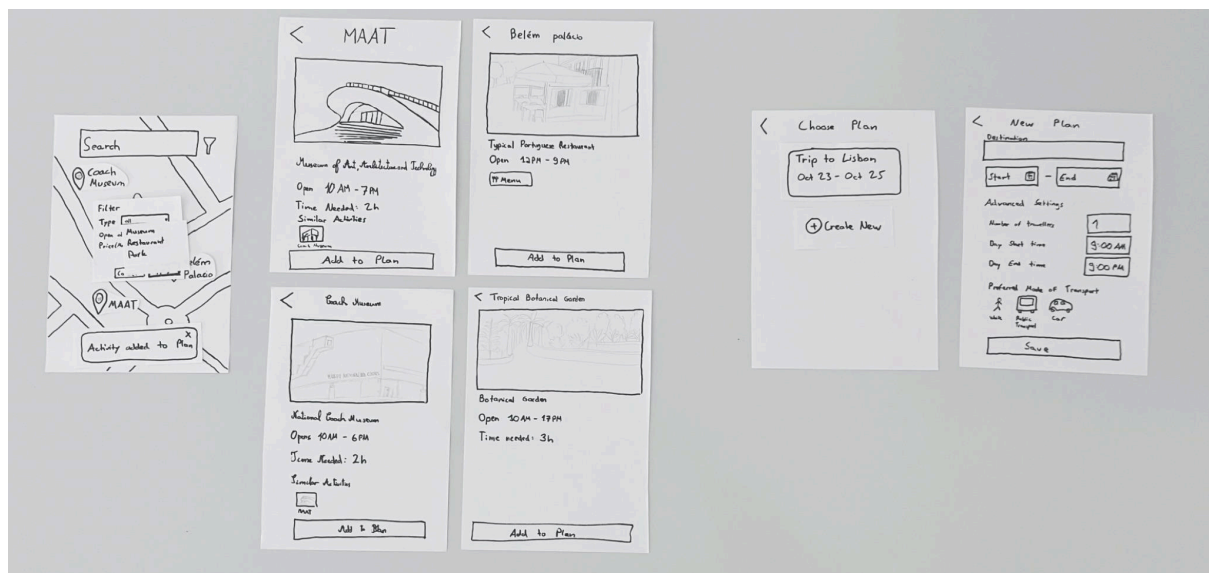 Search
Coach
Museum
Filter
Type All
Open at Museum
Restaurant
Park
Palacio
MAAT
X
Activity added to Plan
< MAAT
Museum of Art, Architecture and Technology
Open 10 AM - 7 PM
Time Needed: 2h
Similar Activities
Coach Museum
Add to Plan
< Belém palácio
Typical Portuguese Restaurant
Open 12PM - 9 PM
Menu
Add to Plan
< Coach Museum
National Coach Museum
Opens 10AM - 6 PM
Time Needed: 2h
Similar Activities
MAAT
Add to Plan
< Tropical Botanical Garden
Botanical Garden
Open 10AM - 17PM
Time needed: 3h
Add to Plan
< Choose Plan
Trip to Lisbon
Oct 23 - Oct 25
+ Create New
< New Plan
Destination
Start - End
Advanced Settings
Number of travellers 1
Day Start time 9:00 AM
Day End time 9:00 PM
Preferred Mode of Transport
Walk Public Car
Transport
Save